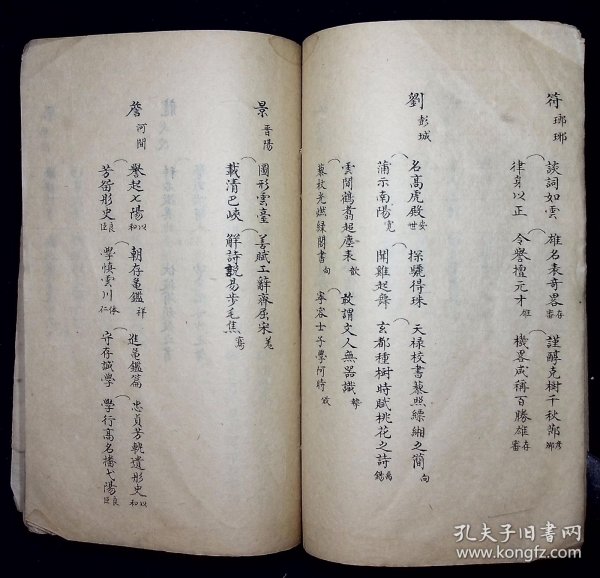 符 瑯琊
談詞如雲 雄名表奇畧存審 謹醇克樹千秋節彥
律身以正 令譽擅元才 機畧咸稱百勝雄存審
劉 彭城
名高虎殿安世 探驪得珠 天禄校書藜照縹緗之簡向
蒲示南陽寬 聞雞起舞 玄都種樹時賦桃花之詩禹錫
雲間鶴翥起塵表歊 敢謂文人無器識摯
藜杖光燃綠閣書向 寧容士子學何時
景 晉陽
圖形雲臺 善賦工辭齊屈宋差
載清巴峽 解詩說易步毛焦鸞
詹 河間
譽起弋陽以和 朝存龜鑑祥 進龜鑑篇 忠貞芳軌遺彤史以和
芳苗彤史良臣 學慎雲川依仁 守存誠學 學行高名播弋陽良臣
孔夫子旧书网
www.kongfz.com